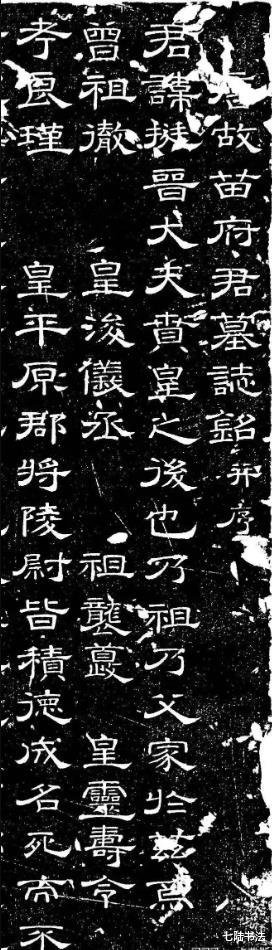 唐故苗府君墓誌銘并序
君諱挺晉大夫賁皇之後也乃祖乃父家於茲焉
曾祖徹 皇浚儀丞 祖襲 皇靈壽令
考良瑾 皇平原郡將陵尉皆積德成名死而不
七陆书法